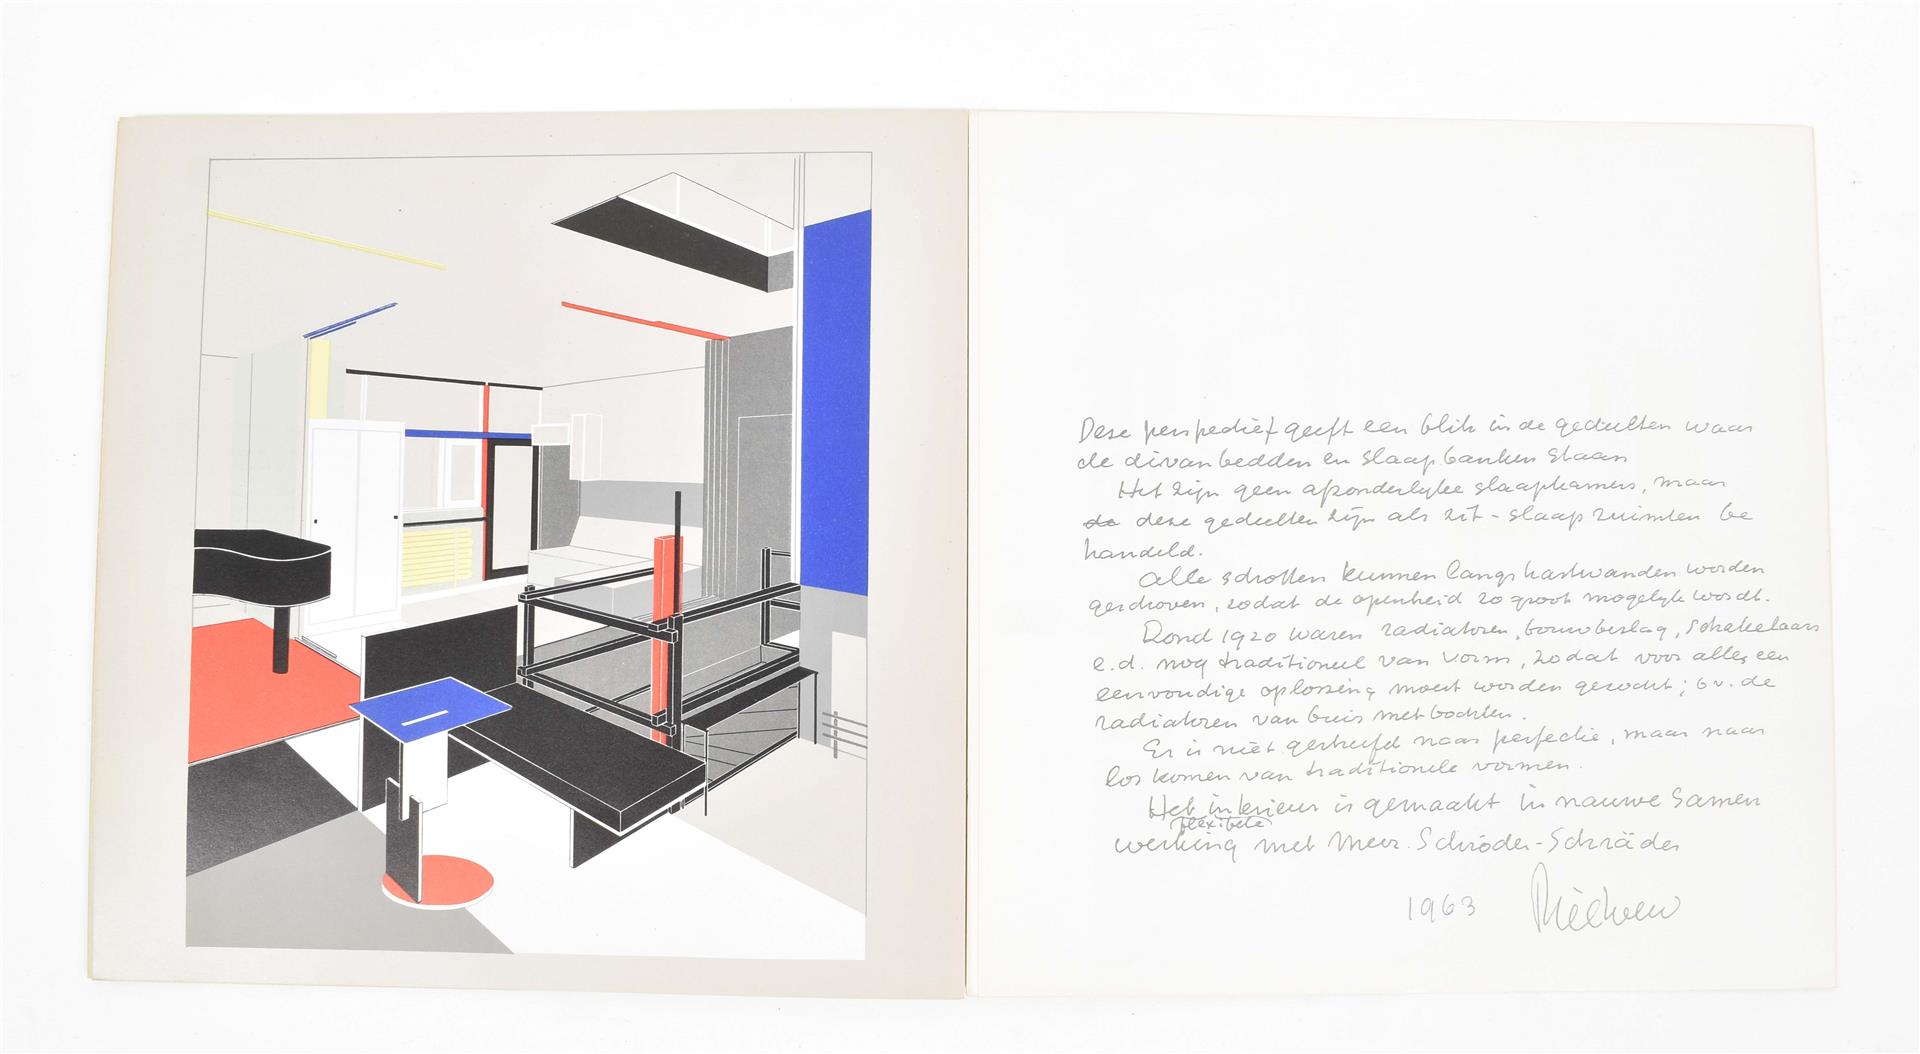 Deze perspectief geeft een blik in de gedeelten waar
de divanbedden en slaapbanken staan
Het zijn geen afzonderlijke slaapkamers, maar
de deze gedeelten zijn als zit-slaapruimten be
handeld.
Alle schotten kunnen langs kastwanden worden
geschoven, zodat de openheid zo groot mogelijk wordt.
Rond 1920 waren radiatoren, bouwbeslag, schakelaars
e.d. nog traditioneel van vorm, zodat voor alles een
eenvoudige oplossing moest worden gezocht; b.v. de
radiatoren van buis met bochten.
Er is niet gestreefd naar perfectie, maar naar
los komen van traditionele vormen.
Het interieur is gemaakt in nauwe samen
flexibele
werking met Mevr. Schröder-Schräder
1963 Rietveld